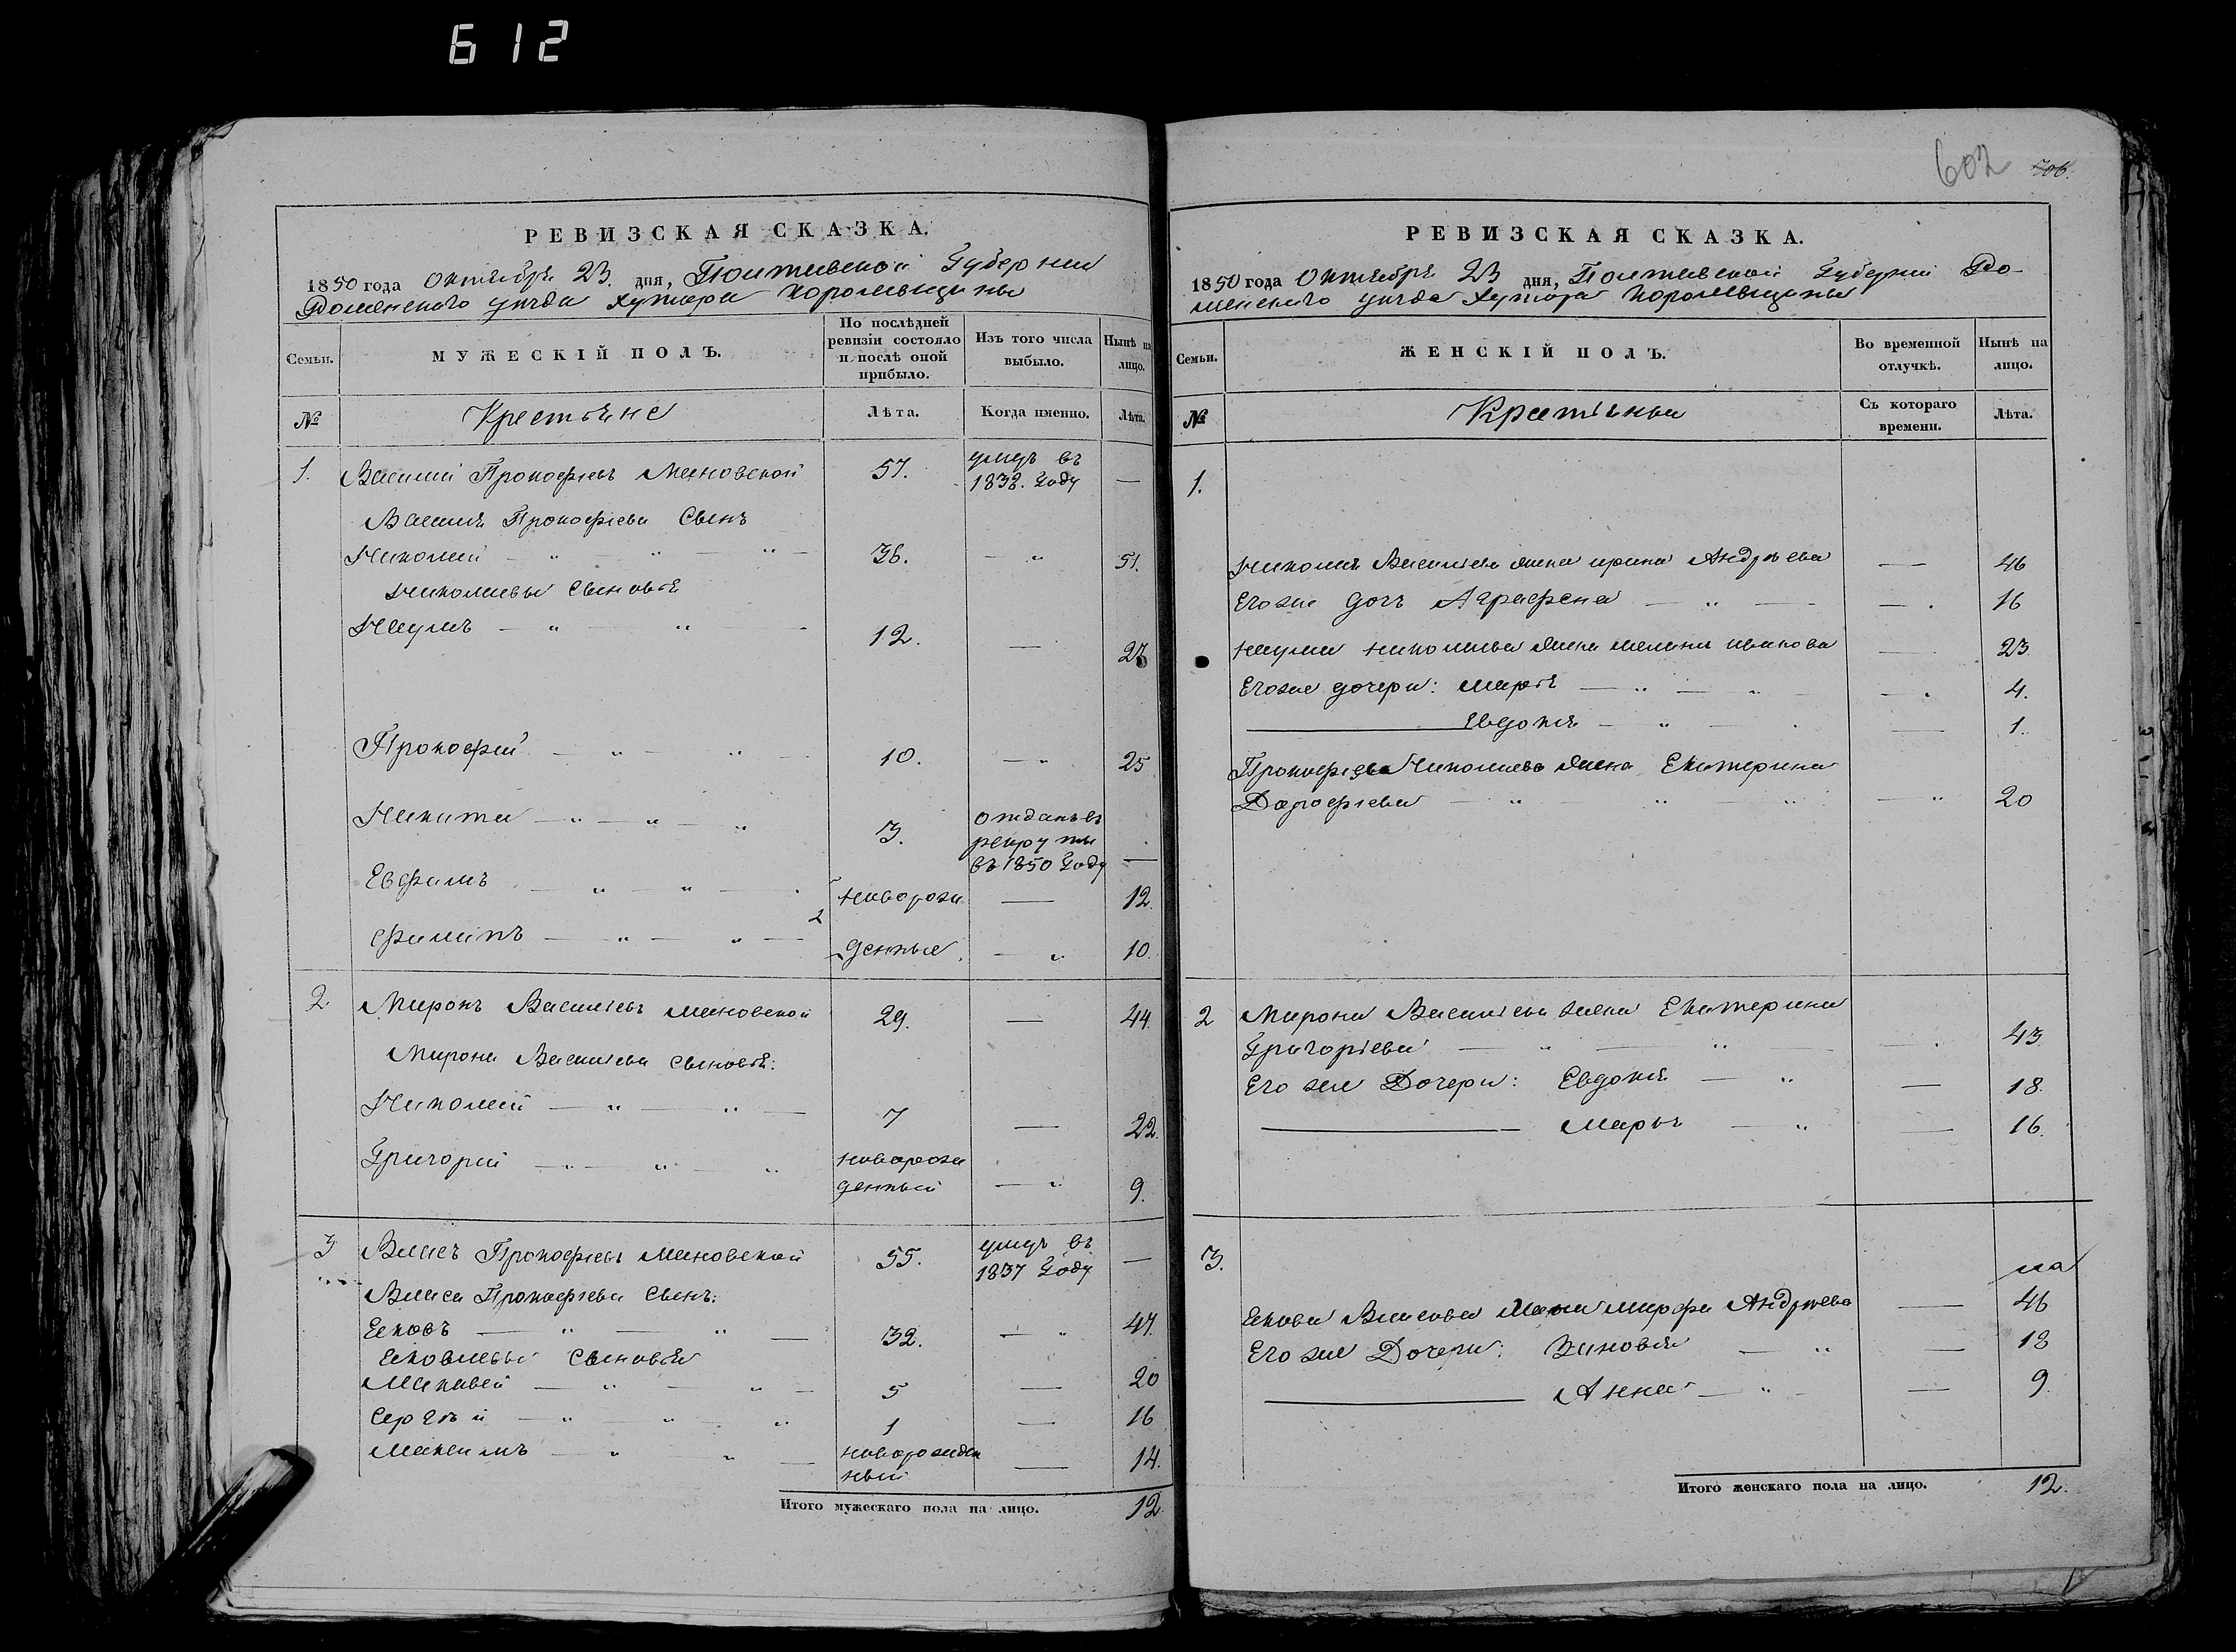 612
602 706.
РЕВИЗСКАЯ СКАЗКА.
1850 года Октября 23. дня, Полтавской Губернии
Роменского уѣзда хутора Королевщины
Семьи.
МУЖЕСКІЙ ПОЛЪ.
По послѣдней ревизіи состояло и послѣ оной прибыло.
Изъ того числа выбыло.
Нынѣ на лицо.
№
Крестьяне
Лѣта.
Когда именно.
Лѣта.
1. Василий Прокофіевъ Мановской 57. умеръ въ 1838. Году —
Василія Прокофіева Сынъ
Николай — " — " — " — 36. — " 51.
Николаевы Сыновья
Наумъ — " — " — 12. — 27
Прокофий — " — " — 10. — " 25
Никита — " — " — " 3. отданъ въ рекруты въ 1850 Году —
Евфимъ — " — " — новорож 12.
Филипъ — " — " — 2 денные. — " 10.
2. Миронъ Васильевъ Мановской 29. — 44.
Мирона Васильева Сыновья:
Николай — " — " — 7 — 22.
Григорий — " — " — " новорож денный — " 9.
3 Власъ Прокофіевъ Мановской 55. умеръ въ 1837 Году —
Власа Прокофіева Сынъ:
Яковъ — " — " — 32. — " 47.
Яковлевы Сыновья
Макавей — " — " — 5 — 20
Сергѣй — " — " — " 1 — 16
Максимъ — " — " — новорожден ный — 14.
Итого мужескаго пола на лицо. 12.
РЕВИЗСКАЯ СКАЗКА.
1850 года Октября 23 дня, Полтавской Губерніи Ро-
менского уѣзда Хутора Королевщины
Семьи.
ЖЕНСКІЙ ПОЛЪ.
Во временной отлучкѣ.
Нынѣ на лицо.
№
Крестьяны
Съ котораго времени.
Лѣта.
1.
Николая Васильева жена ирина Андрѣева — 46
Егоже дочь Аграфена — " — — . 16
Наума Николаева жена ивanова — 23.
Егоже дочери: Марья — " — " — — . 4.
Евдокія — " — . — 1.
Прокофіева Николаева жена Екатерина
Дорофіева — " " " — " 20
2 Мирона Васильева жена Екатерина
Григоріева — " — " — — . 43
Его же Дочери: Евдокія — " — 18.
Марья — " — 16.
3.
Якова Власова жена Марфа Андрѣева — 46
Его же Дочери: Зиновія — " — 18
Анна — " — — 9.
Итого женскаго пола на лицо. 12.